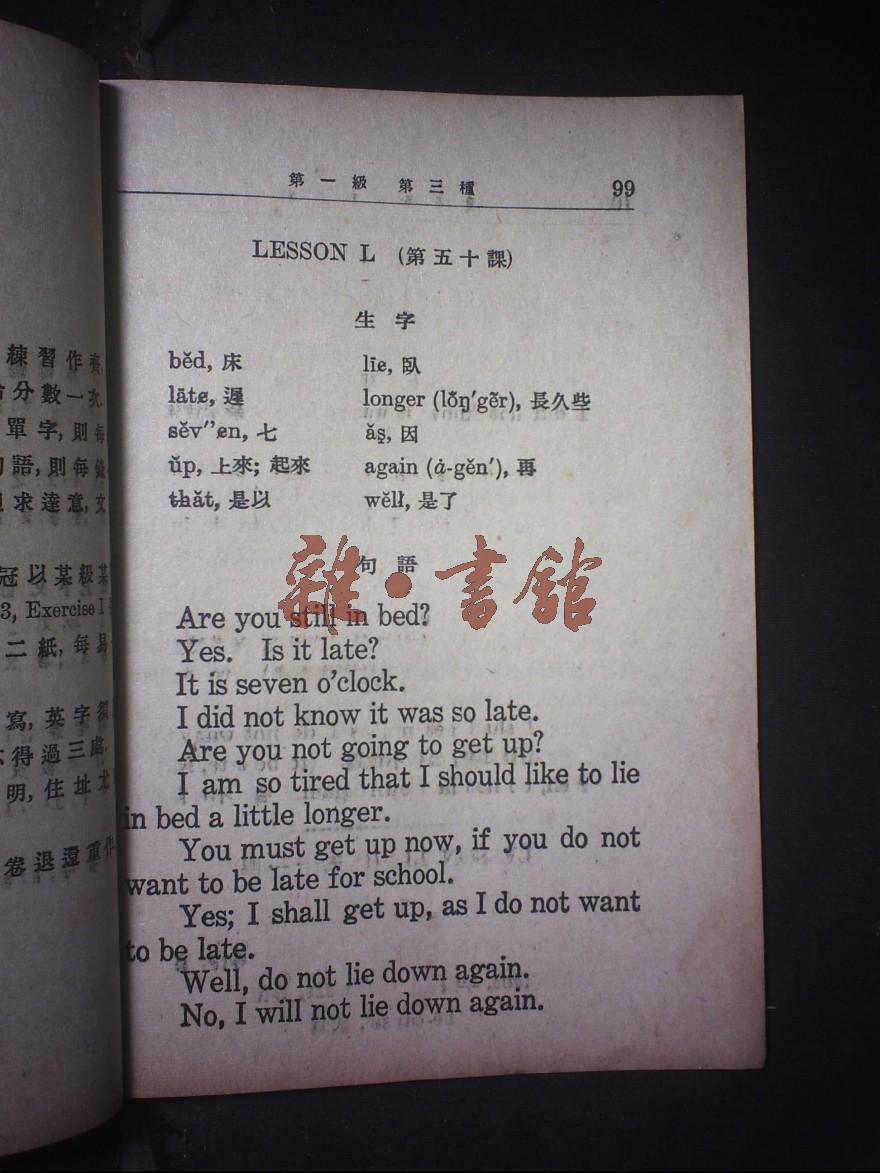 練習作齊,
分數一次.
單字,則每
語,則每
求達意,文
冠以某級某
3, Exercise I
二紙,每易
寫,英字須
得過三處.
明,住址尤
卷退還重作
第一級 第三種 99
LESSON L (第五十課)
生字
bĕd, 床 līe, 臥
lāte, 遲 longer (lŏŋ′gẽr), 長久些
sĕv″en, 七 ăş, 因
ŭp, 上來; 起來 again (ȧ-gĕn′), 再
thăt, 是以 wĕll, 是了
句語
雜·書館
Are you still in bed?
Yes. Is it late?
It is seven o’clock.
I did not know it was so late.
Are you not going to get up?
I am so tired that I should like to lie
in bed a little longer.
You must get up now, if you do not
want to be late for school.
Yes; I shall get up, as I do not want
to be late.
Well, do not lie down again.
No, I will not lie down again.